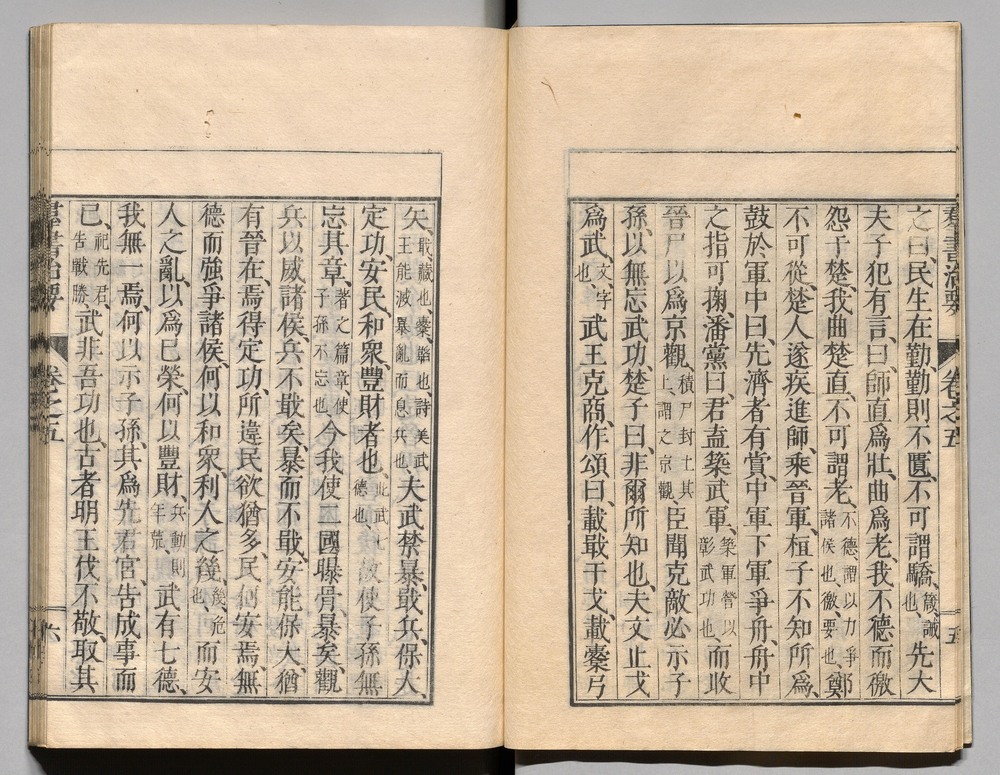 羣書治要 卷之五 五
之曰、民生在勤、勤則不匱、不可謂驕、箴誡也、先大
夫子犯有言、曰、師直爲壯、曲爲老、我不德而徼
怨于楚、我曲楚直、不可謂老、不德謂以力爭諸侯也、徼要也、鄭
不可從、楚人遂疾進師、乘晉軍、桓子不知所爲、
鼓於軍中曰、先濟者有賞、中軍下軍爭舟、舟中
之指可掬、潘黨曰、君盍築武軍、築軍營以彰武功也、而收
晉尸以爲京觀、積尸封土其上謂之京觀臣聞克敵必示子
孫、以無忘武功、楚子曰、非爾所知也、夫文止戈
爲武、文字也、武王克商、作頌曰、載戢干戈、載櫜弓
矢、戢藏也、櫜韜也詩美武王能滅暴亂而息兵也、夫武禁暴、戢兵、保大、
定功、安民、和衆、豐財者也、此武七德也故使子孫無
忘其章、著之篇章使子孫不忘也、今我使二國曝骨、暴矣、觀
兵以威諸侯、兵不戢矣、暴而不戢、安能保大、猶
有晉在、焉得定功、所違民欲猶多、民何安焉、無
德而強爭諸侯、何以和衆、利人之幾、幾危也、而安
人之亂、以爲己榮、何以豐財、兵動則年荒、武有七德、
我無一焉、何以示子孫、其爲先君宮、告成事而
已、祀先君、告戰勝、武非吾功也、古者明王伐不敬、取其
羣書治要 卷之五 六